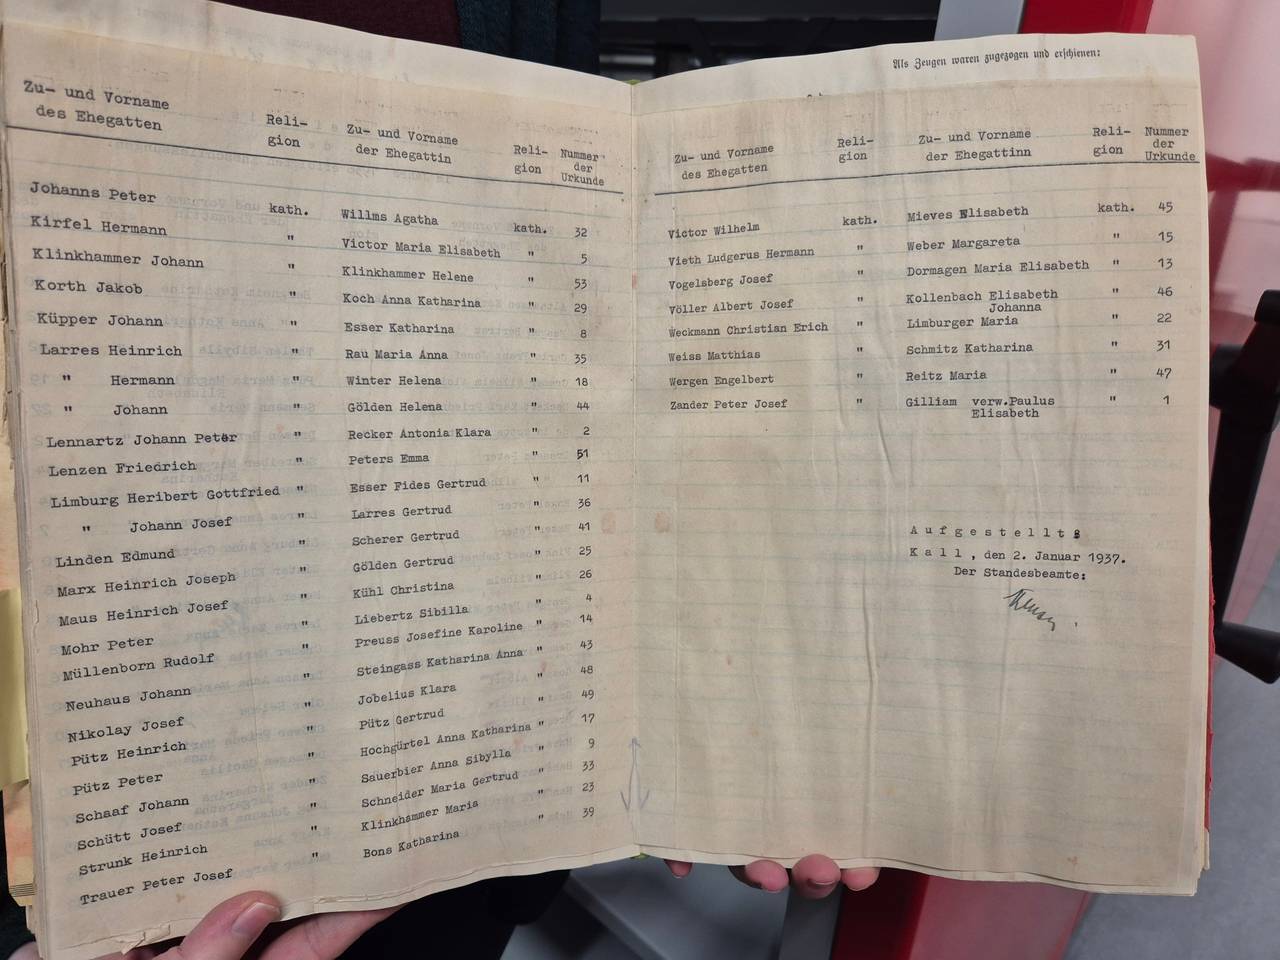 Zu- und Vorname des Ehegatten Reli- gion Zu- und Vorname der Ehegattin Reli- gion Nummer der Urkunde
Johanns Peter kath. Willms Agatha kath. 32
Kirfel Hermann " Victor Maria Elisabeth " 5
Klinkhammer Johann " Klinkhammer Helene " 53
Korth Jakob " Koch Anna Katharina " 29
Küpper Johann " Esser Katharina " 8
Larres Heinrich " Rau Maria Anna " 35
" Hermann " Winter Helena " 18
" Johann " Gölden Helena " 44
Lennartz Johann Peter " Recker Antonia Klara " 2
Lenzen Friedrich " Peters Emma " 51
Limburg Heribert Gottfried " Esser Fides Gertrud " 11
" Johann Josef " Larres Gertrud " 36
Linden Edmund " Scherer Gertrud " 41
Marx Heinrich Joseph " Gölden Gertrud " 25
Maus Heinrich Josef " Kühl Christina " 26
Mohr Peter " Liebertz Sibilla " 4
Müllenborn Rudolf " Preuss Josefine Karoline " 14
Neuhaus Johann " Steingass Katharina Anna " 43
Nikolay Josef " Jobelius Klara " 48
Pütz Heinrich " Pütz Gertrud " 49
Pütz Peter " Hochgürtel Anna Katharina " 17
Schaaf Johann " Sauerbier Anna Sibylla " 9
Schütt Josef " Schneider Maria Gertrud " 33
Strunk Heinrich " Klinkhammer Maria " 23
Trauer Peter Josef " Bons Katharina " 39
Als Zeugen waren zugezogen und erschienen:
Zu- und Vorname des Ehegatten Reli- gion Zu- und Vorname der Ehegattinn Reli- gion Nummer der Urkunde
Victor Wilhelm kath. Mieves Elisabeth kath. 45
Vieth Ludgerus Hermann " Weber Margareta " 15
Vogelsberg Josef " Dormagen Maria Elisabeth " 13
Völler Albert Josef " Kollenbach Elisabeth " 46
Johanna
Weckmann Christian Erich " Limburger Maria " 22
Weiss Matthias " Schmitz Katharina " 31
Wergen Engelbert " Reitz Maria " 47
Zander Peter Josef " Gilliam verw.Paulus " 1
Elisabeth
Aufgestellt:
Kall, den 2. Januar 1937.
Der Standesbeamte: